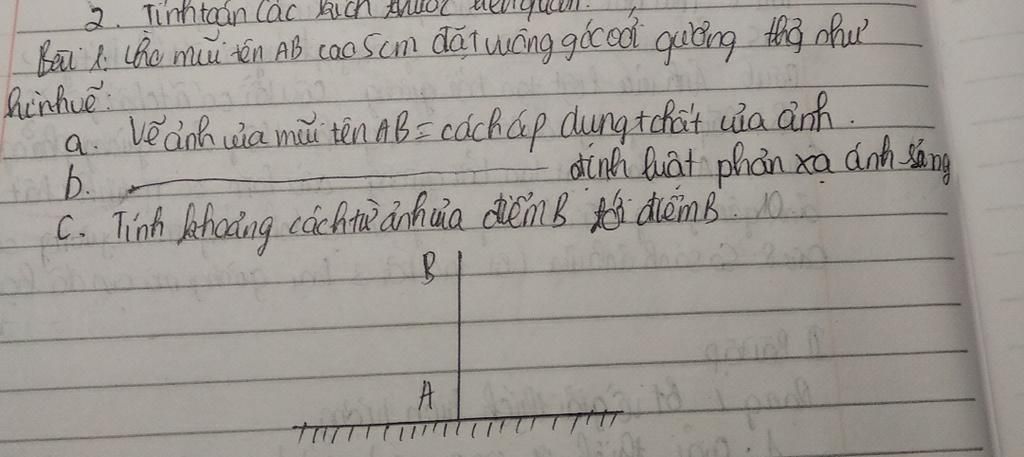 2. Tính toán các kích thước liên quan.
Bài 1. Cho mũi tên AB cao 5cm đặt vuông góc với gương thẳng như
hình vẽ:
a. Vẽ ảnh của mũi tên AB = cách áp dụng t chất của ảnh.
b. ———————— định luật phản xạ ánh sáng
c. Tính khoảng cách từ ảnh của điểm B tới điểm B.
B
A